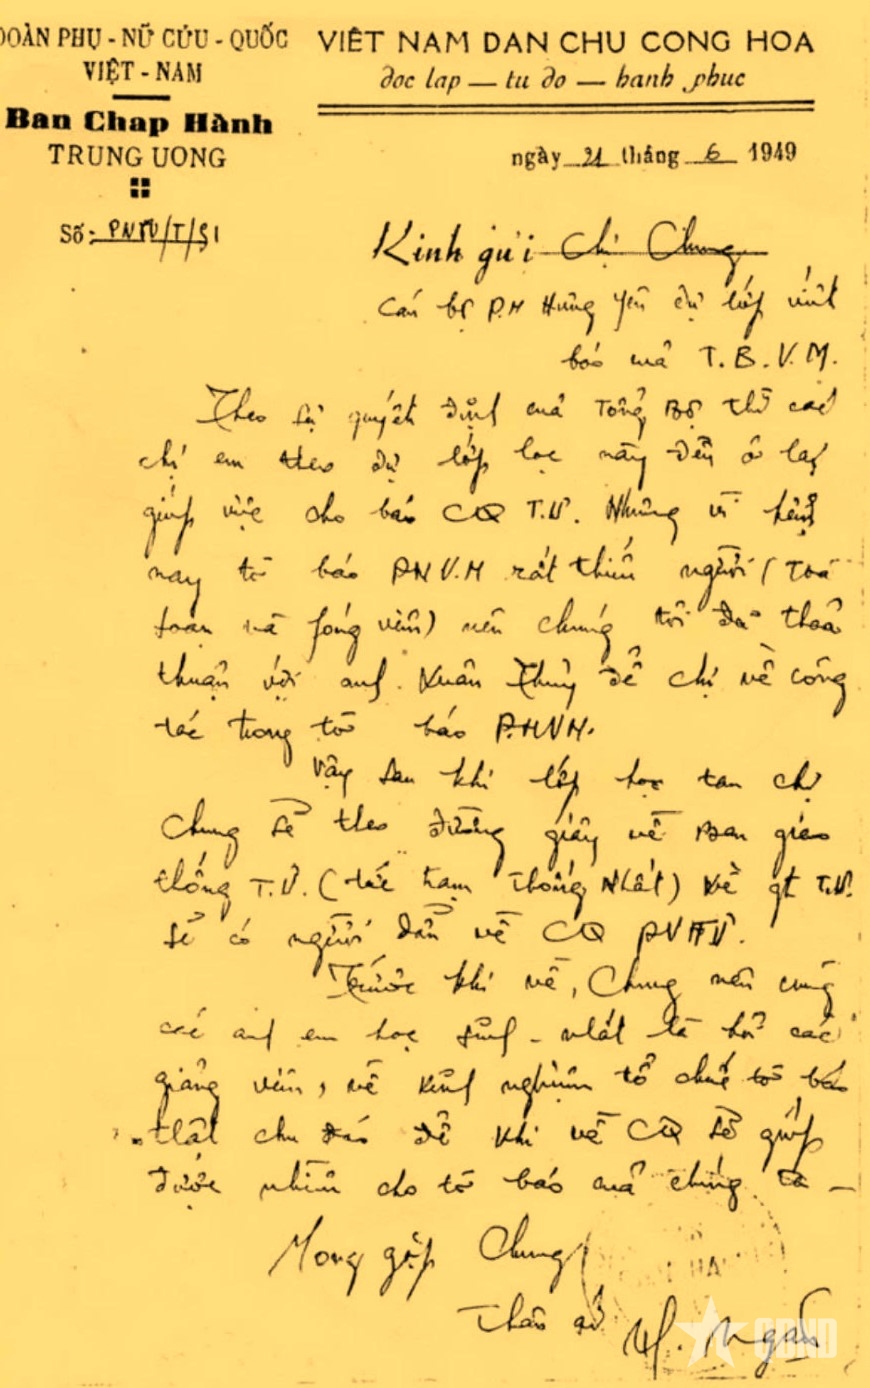 ĐOÀN PHỤ - NỮ CỨU - QUỐC
VIỆT - NAM
Ban Chap Hành
TRUNG UONG
Số: PNTƯ/T/51
VIÊT NAM DAN CHU CONG HOA
đoc lap — tu do — hanh phuc
ngày 21 tháng 6 1949
Kinh gửi chị Chung
Cán bộ P.N Hưng Yên dự lớp viết
báo của T.B.V.M.
Theo sự quyết định của Tổng Bộ thì các
chị em theo dự lớp học này đều ở lại
giúp việc cho báo CQ T.Ư. Nhưng vì hiện
nay tờ báo PNV.N rất thiếu người (toà
soạn và fóng viên) nên chúng tôi đã thoả
thuận với anh Xuân Thủy để chị về công
tác trong tờ báo P.NVN.
Vậy sau khi lớp học tan chị
Chung sẽ theo đường giây về Ban giao
thông T.Ư. (tức trạm Thống Nhất) về gt T.Ư.
sẽ có người dẫn về CQ PNTƯ.
Trước khi về, Chung nên cùng
các anh em học sinh - nhất là hỏi các
giảng viên, về kinh nghiệm tổ chức tờ báo
thật chu đáo để khi về CQ sẽ giúp
được nhiều cho tờ báo của chúng ta —
Mong gặp Chung
Thân ái
Ngân
QĐND